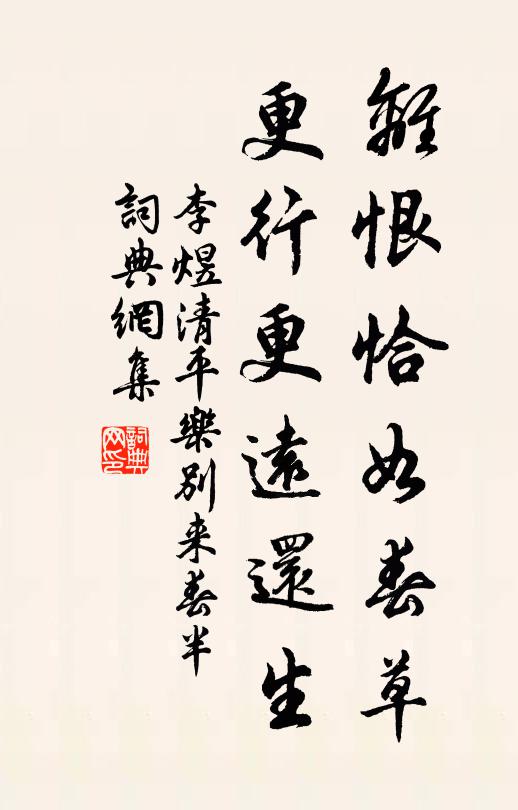 離恨恰如春草
更行更遠還生
李煜清平樂別来春半
詞典網集
詞典网印